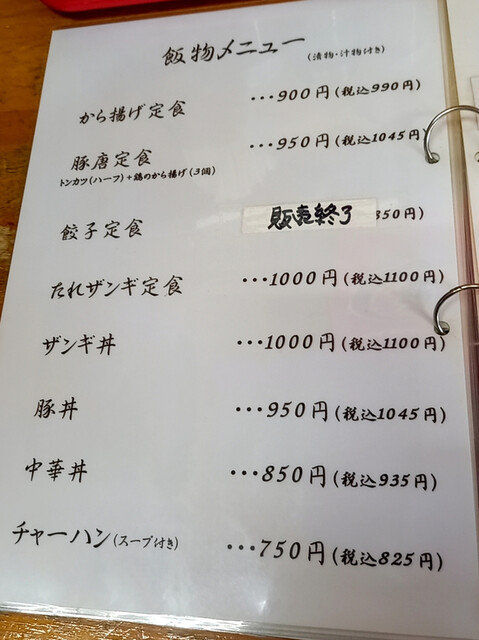 飯物メニュー (漬物・汁物付き)
から揚げ定食 ・・・900円(税込990円)
豚唐定食 ・・・950円(税込1045円)
トンカツ(ハーフ)+鶏のから揚げ(3個)
餃子定食 販売終了 850円)
たれザンギ定食 ・・・1000円(税込1100円)
ザンギ丼 ・・・1000円(税込1100円)
豚丼 ・・・950円(税込1045円)
中華丼 ・・・850円(税込935円)
チャーハン(スープ付き) ・・・750円(税込825円)